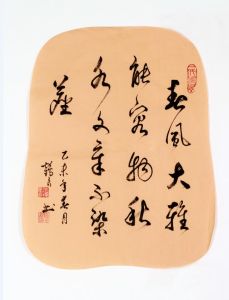 春風大雅
能容物秋
水文章不染
塵
乙未年春月